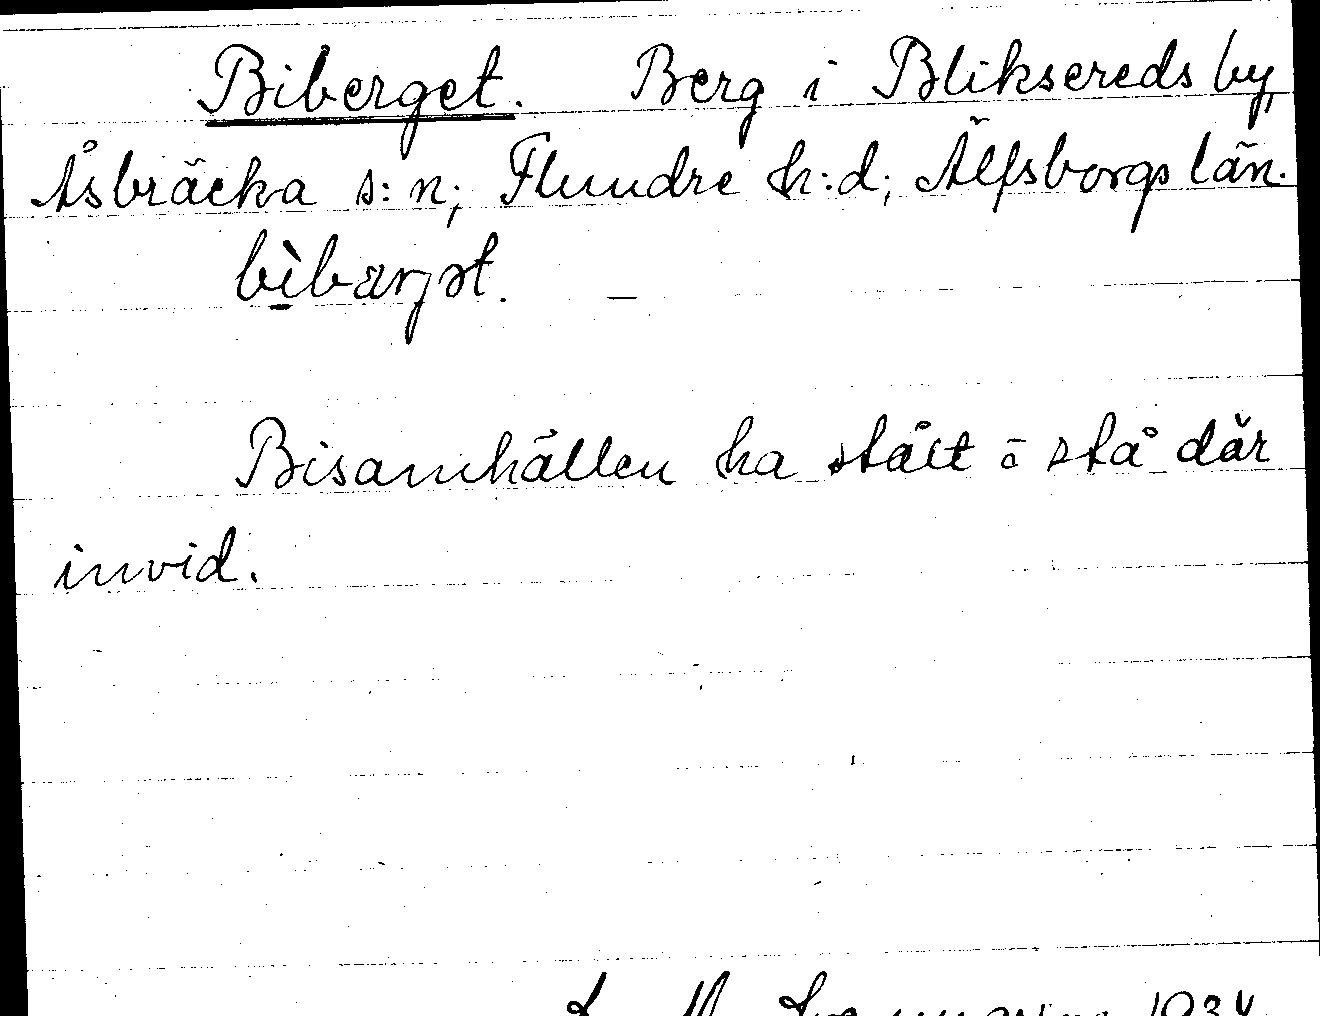 Biberget. Berg i Bliksereds by,
Åsbräcka s:n; Flundre h:d; Älfsborgs län.
bìbærjət. —
Bisamhällen ha stått å stå där
invid.
1934